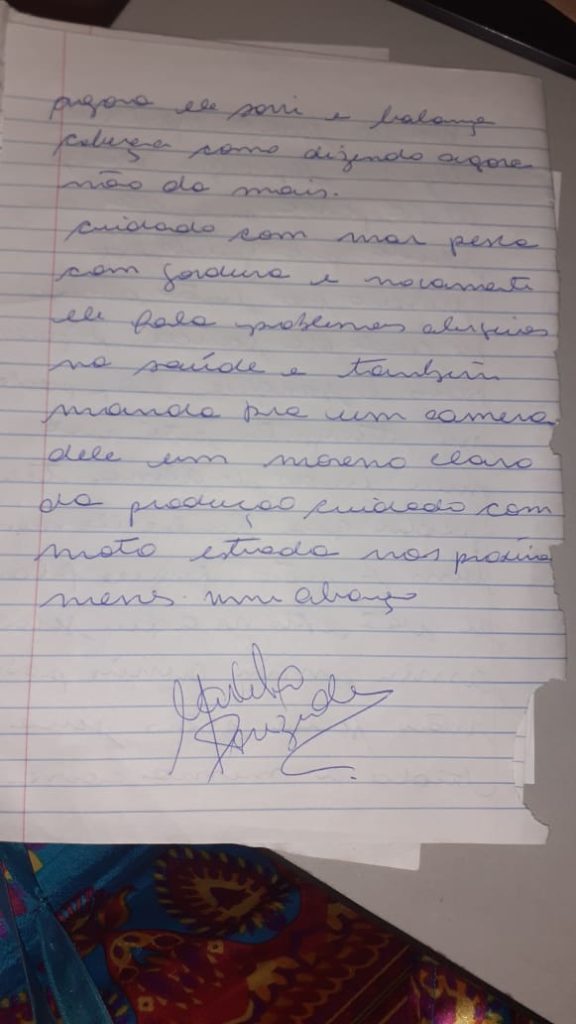 agora ele sorri e balança
cabeça como dizendo agora
não da mais.
cuidado com mar pesca
com gordura e novamente
ele fala problemas
na saúde e também
manda pra um camera
dele um moreno claro
da produção cuidado com
moto estrada nos próximo
meses um abraço